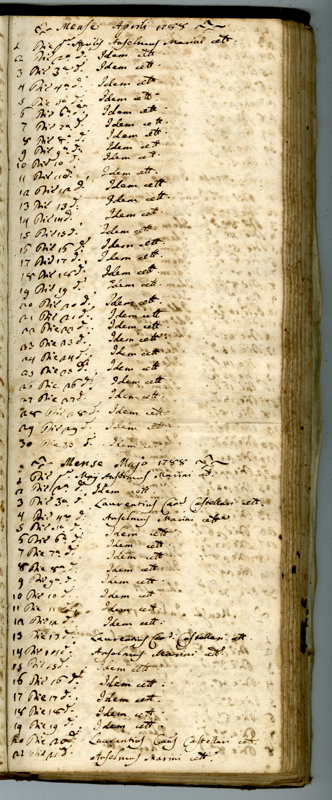 Mense Aprili 1788
1 Die pa Aprilis Anselmus Marini cett.
2 Die 2a d. Idem cett.
3 Die 3a d. Idem cett.
4 Die 4a d. Idem cett.
5 Die 5a d. Idem cett.
6 Die 6a d. Idem cett.
7 Die 7a d. Idem cett.
8 Die 8a d. Idem cett.
9 Die 9a d. Idem cett.
10 Die 10 d. Idem cett.
11 Die 11 d. Idem cett.
12 Die 12 d. Idem cett.
13 Die 13 d. Idem cett.
14 Die 14 d. Idem cett.
15 Die 15 d. Idem cett.
16 Die 16 d. Idem cett.
17 Die 17 d. Idem cett.
18 Die 18 d. Idem cett.
19 Die 19 d. Idem cett.
20 Die 20 d. Idem cett.
21 Die 21 d. Idem cett.
22 Die 22 d. Idem cett.
23 Die 23 d. Idem cett.
24 Die 24 d. Idem cett.
25 Die 25 d. Idem cett.
26 Die 26 d. Idem cett.
27 Die 27 d. Idem cett.
28 Die 28 d. Idem cett.
29 Die 29 d. Idem cett.
30 Die 30 d. Idem cett.
Mense Majo 1788
1 Die pa Maij Anselmus Marini cett.
2 Die 2a d. Idem cett.
3 Die 3a d. Laurentius Can. Castellari cett.
4 Die 4a d. Anselmus Marini cett.
5 Die 5a d. Idem cett.
6 Die 6a d. Idem cett.
7 Die 7a d. Idem cett.
8 Die 8a d. Idem cett.
9 Die 9a d. Idem cett.
10 Die 10 d. Idem cett.
11 Die 11 d. Idem cett.
12 Die 12 d. Idem cett.
13 Die 13 d. Laurentius Can. Castellari cett.
14 Die 14 d. Anselmus Marini cett.
15 Die 15 d. Idem cett.
16 Die 16 d. Idem cett.
17 Die 17 d. Idem cett.
18 Die 18 d. Idem cett.
19 Die 19 d. Idem cett.
20 Die 20 d. Laurentius Can. Castellari cett.
21 Die 21 d. Anselmus Marini cett.